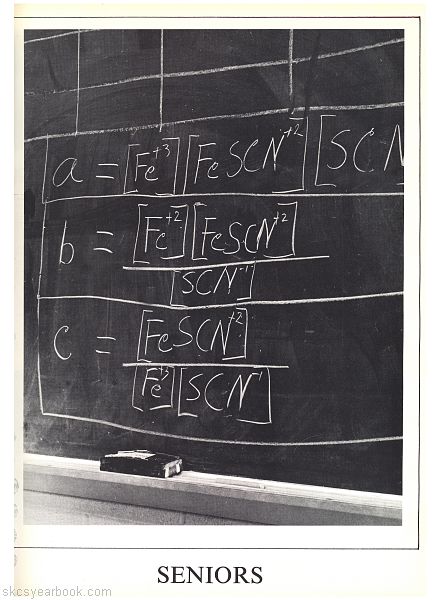 a = [Fe⁺³] [FeSCN⁺²] [SCN
b = [Fe⁺²] [FeSCN⁺²]
[SCN⁻¹]
c = [FeSCN⁺²]
[Fe⁺³] [SCN⁻¹]
SENIORS
skcsyearbook.com